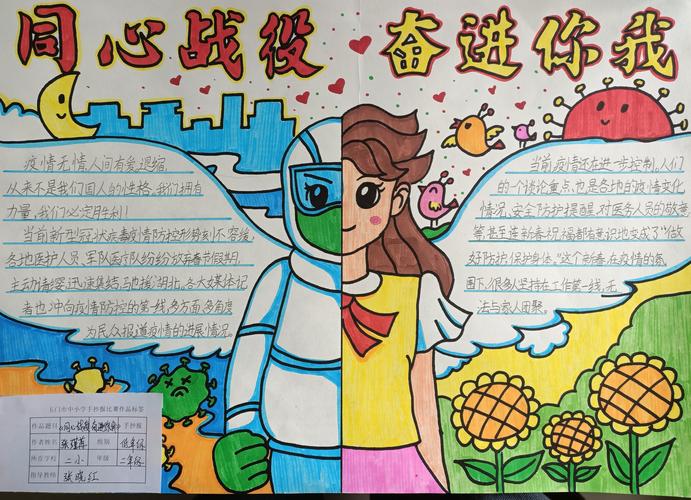 同心战役 奋进你我
疫情无情人间有爱退缩,
从来不是我们国人的性格,我们拥有
力量,我们必定胜利!
当前新型冠状病毒疫情防控形势刻不容缓,
各地医护人员、军队医疗队纷纷放弃春节假期,
主动请缨迅速集结,马也援湖北。各大媒体记
者也冲向疫情防控的第一线,多方面、多角度
为民众报道疫情的进展情况。
当前疫情还在进一步控制,人们
的一个谈论重点,也是各地的疫情变化
情况、安全防护提醒、对医务人员的敬意
等,甚至连新春祝福都有意识地变成了“做
好防护,保护身体。”这个新春,在疫情的氛
围下,很多人坚持在工作第一线,无
法与家人团聚。
玉门市中小学手抄报比赛作品标签
作品题目 《同心战役 奋进你我》手抄报
作者姓名 张瑾萍 组别 低年级
所在学校 二小 年级 二年级
指导教师 张晓红